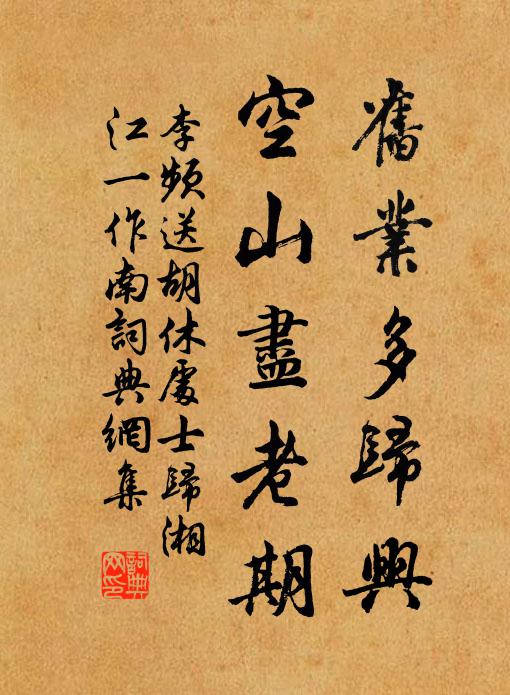 舊業多歸興
空山盡老期
李頻送胡休處士歸湘
江一作南詞典網集
詞典網印